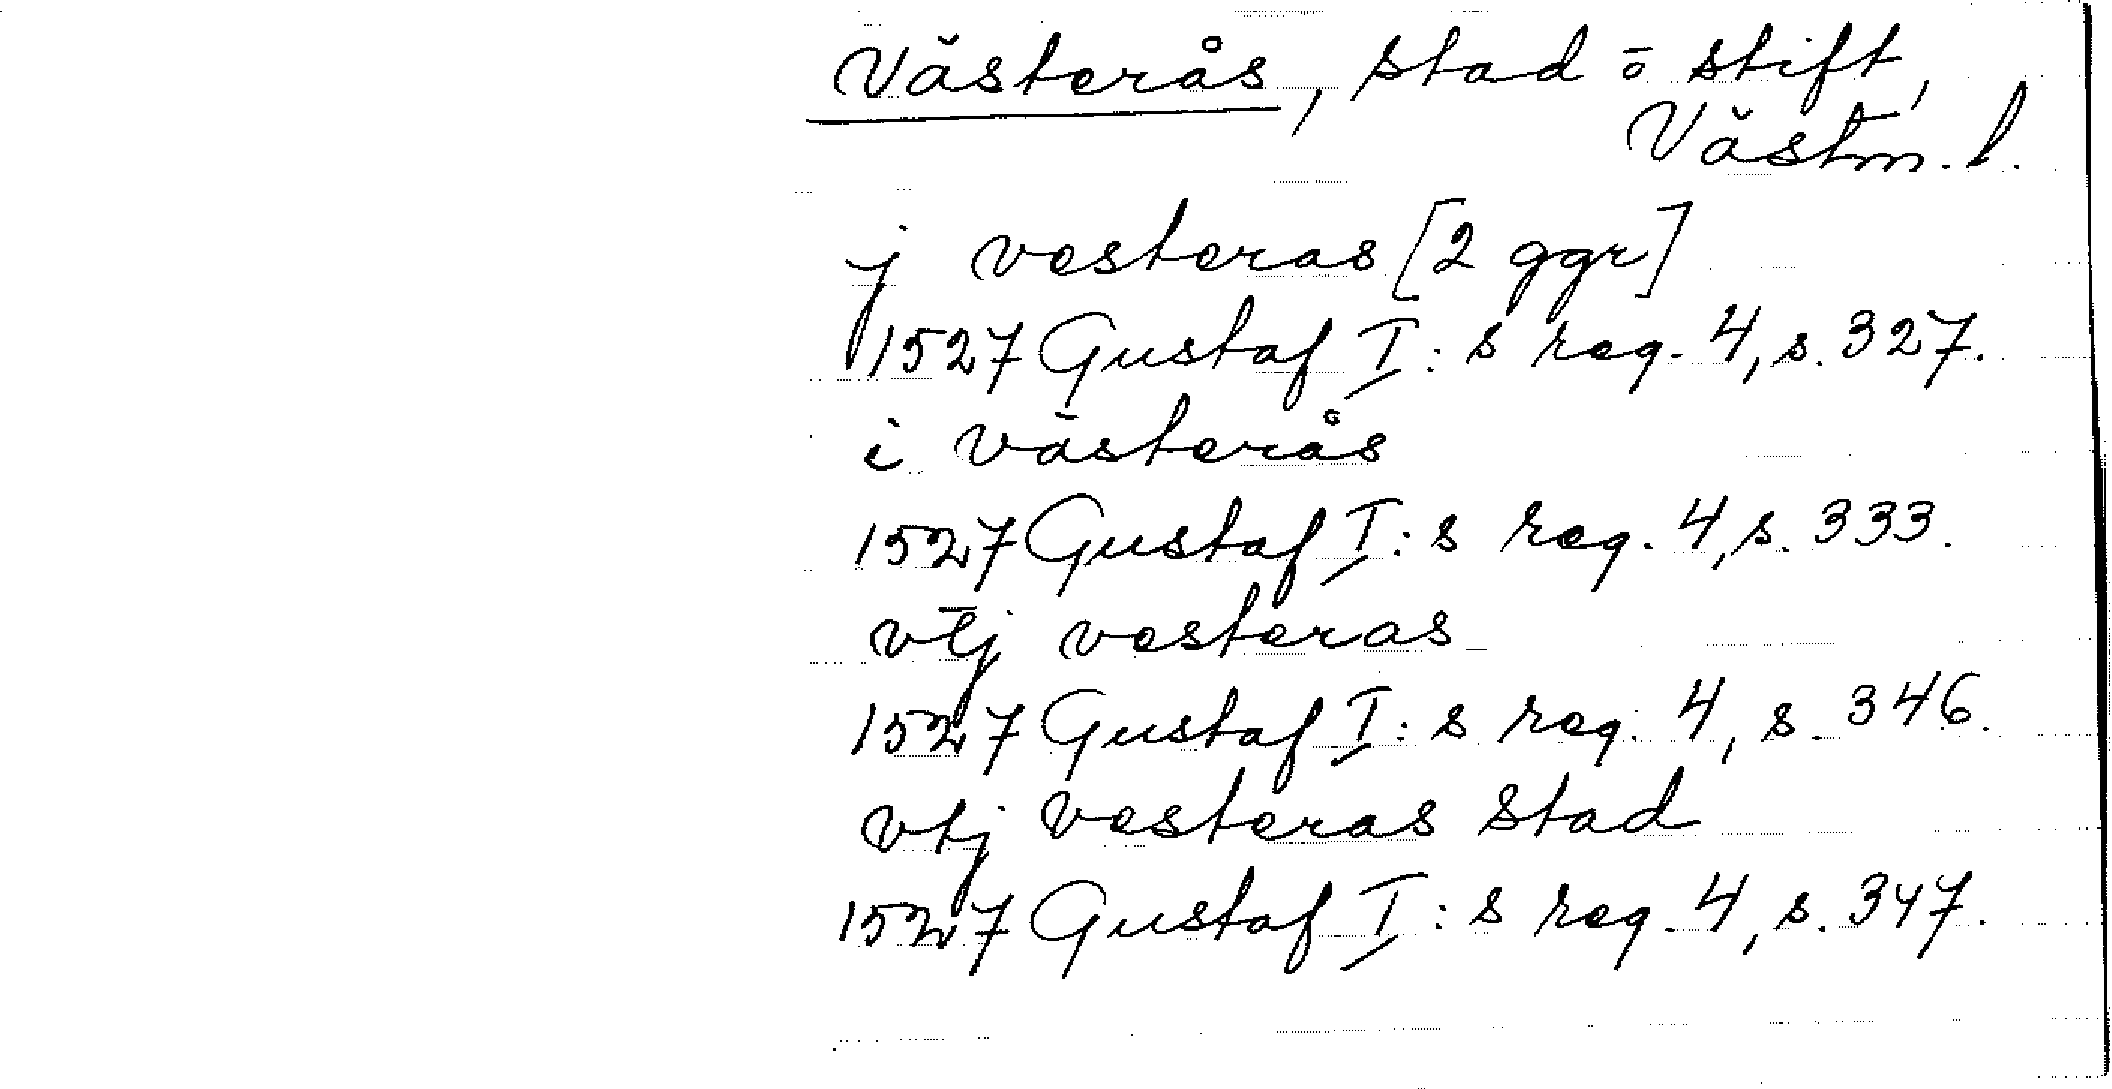 Västerås, stad ō stift,
Västm. l.
j vesteras [2 ggr]
1527 Gustaf I:s reg. 4, s. 327.
i västerås
1527 Gustaf I:s reg. 4, s. 333.
vt̄j vesteras
1527 Gustaf I:s reg. 4, s. 346.
vtj vesteras stad
1527 Gustaf I:s reg. 4, s. 347.